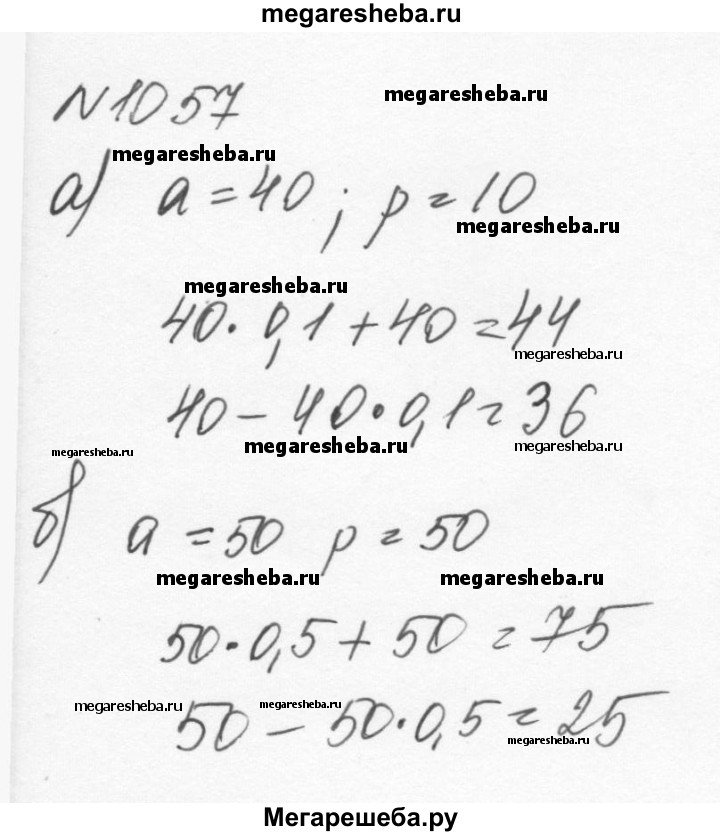 megaresheba.ru
N1057
megaresheba.ru
megaresheba.ru
а) a = 40; p = 10
megaresheba.ru
megaresheba.ru
40 · 0,1 + 40 = 44
megaresheba.ru
40 - 40 · 0,1 = 36
megaresheba.ru
megaresheba.ru
megaresheba.ru
б) a = 50 p = 50
megaresheba.ru
megaresheba.ru
50 · 0,5 + 50 = 75
megaresheba.ru
megaresheba.ru
50 - 50 · 0,5 = 25
megaresheba.ru
Мегарешеба.ру